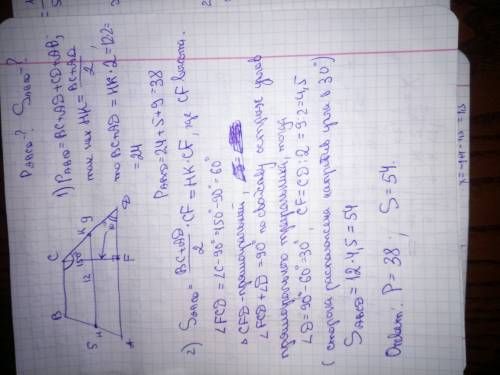 P ABCD - ? S ABCD - ?
1) P ABCD = BC+AD+CD+AB,
так как HK = BC+AD / 2
то BC+AD = HK·2 = 12·2 =
= 24
P ABCD = 24+5+9 = 38
2) S ABCD = BC+AD / 2 · CF = HK·CF, где CF высота.
∠FCD = ∠C-90° = 150°-90° = 60°
△ CFD - прямоугольный,
∠FCD+∠D = 90° по свойству острых углов
прямоугольного треугольника, тогда
∠D = 90°-60° = 30°, CF = CD:2 = 9:2 = 4,5
(сторона расположена напротив угла в 30°)
S ABCD = 12·4,5 = 54
Ответ: P = 38, S = 54.
B
C
150°
K
9
12
5
H
A
F
D